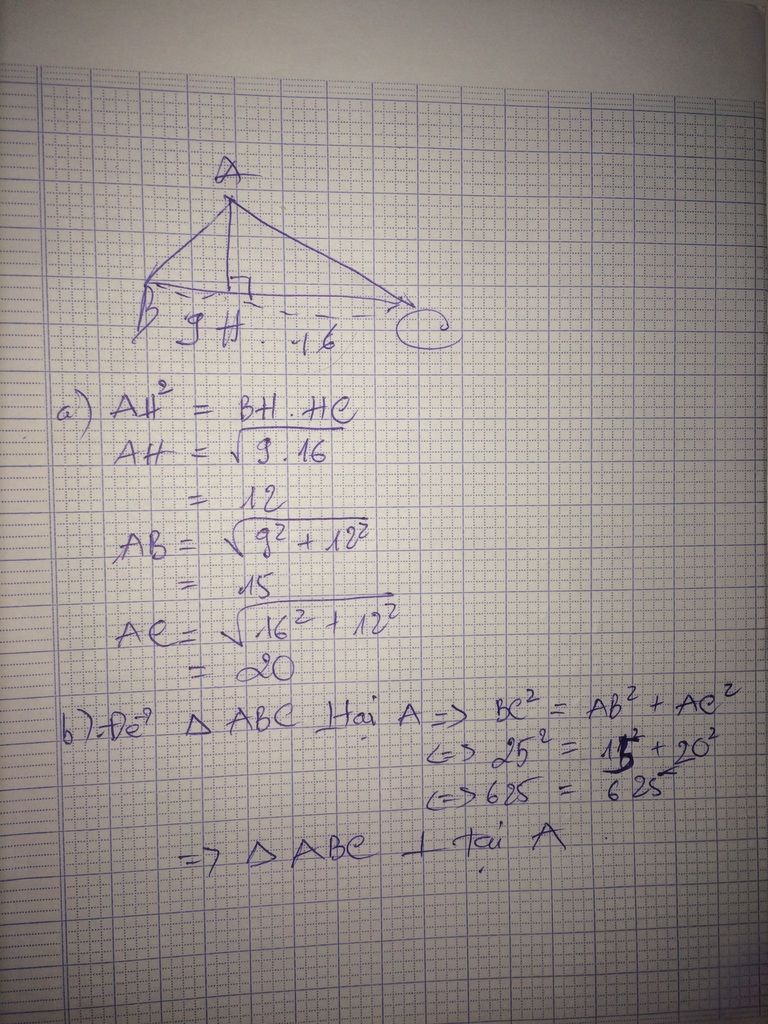 A
B 9 H 16 C
a) AH² = BH . HC
AH = √9.16
= 12
AB = √9² + 12²
= 15
AC = √16² + 12²
= 20
b) Để Δ ABC ⊥ tại A => BC² = AB² + AC²
<=> 25² = 15² + 20²
<=> 625 = 625
=> Δ ABC ⊥ tại A